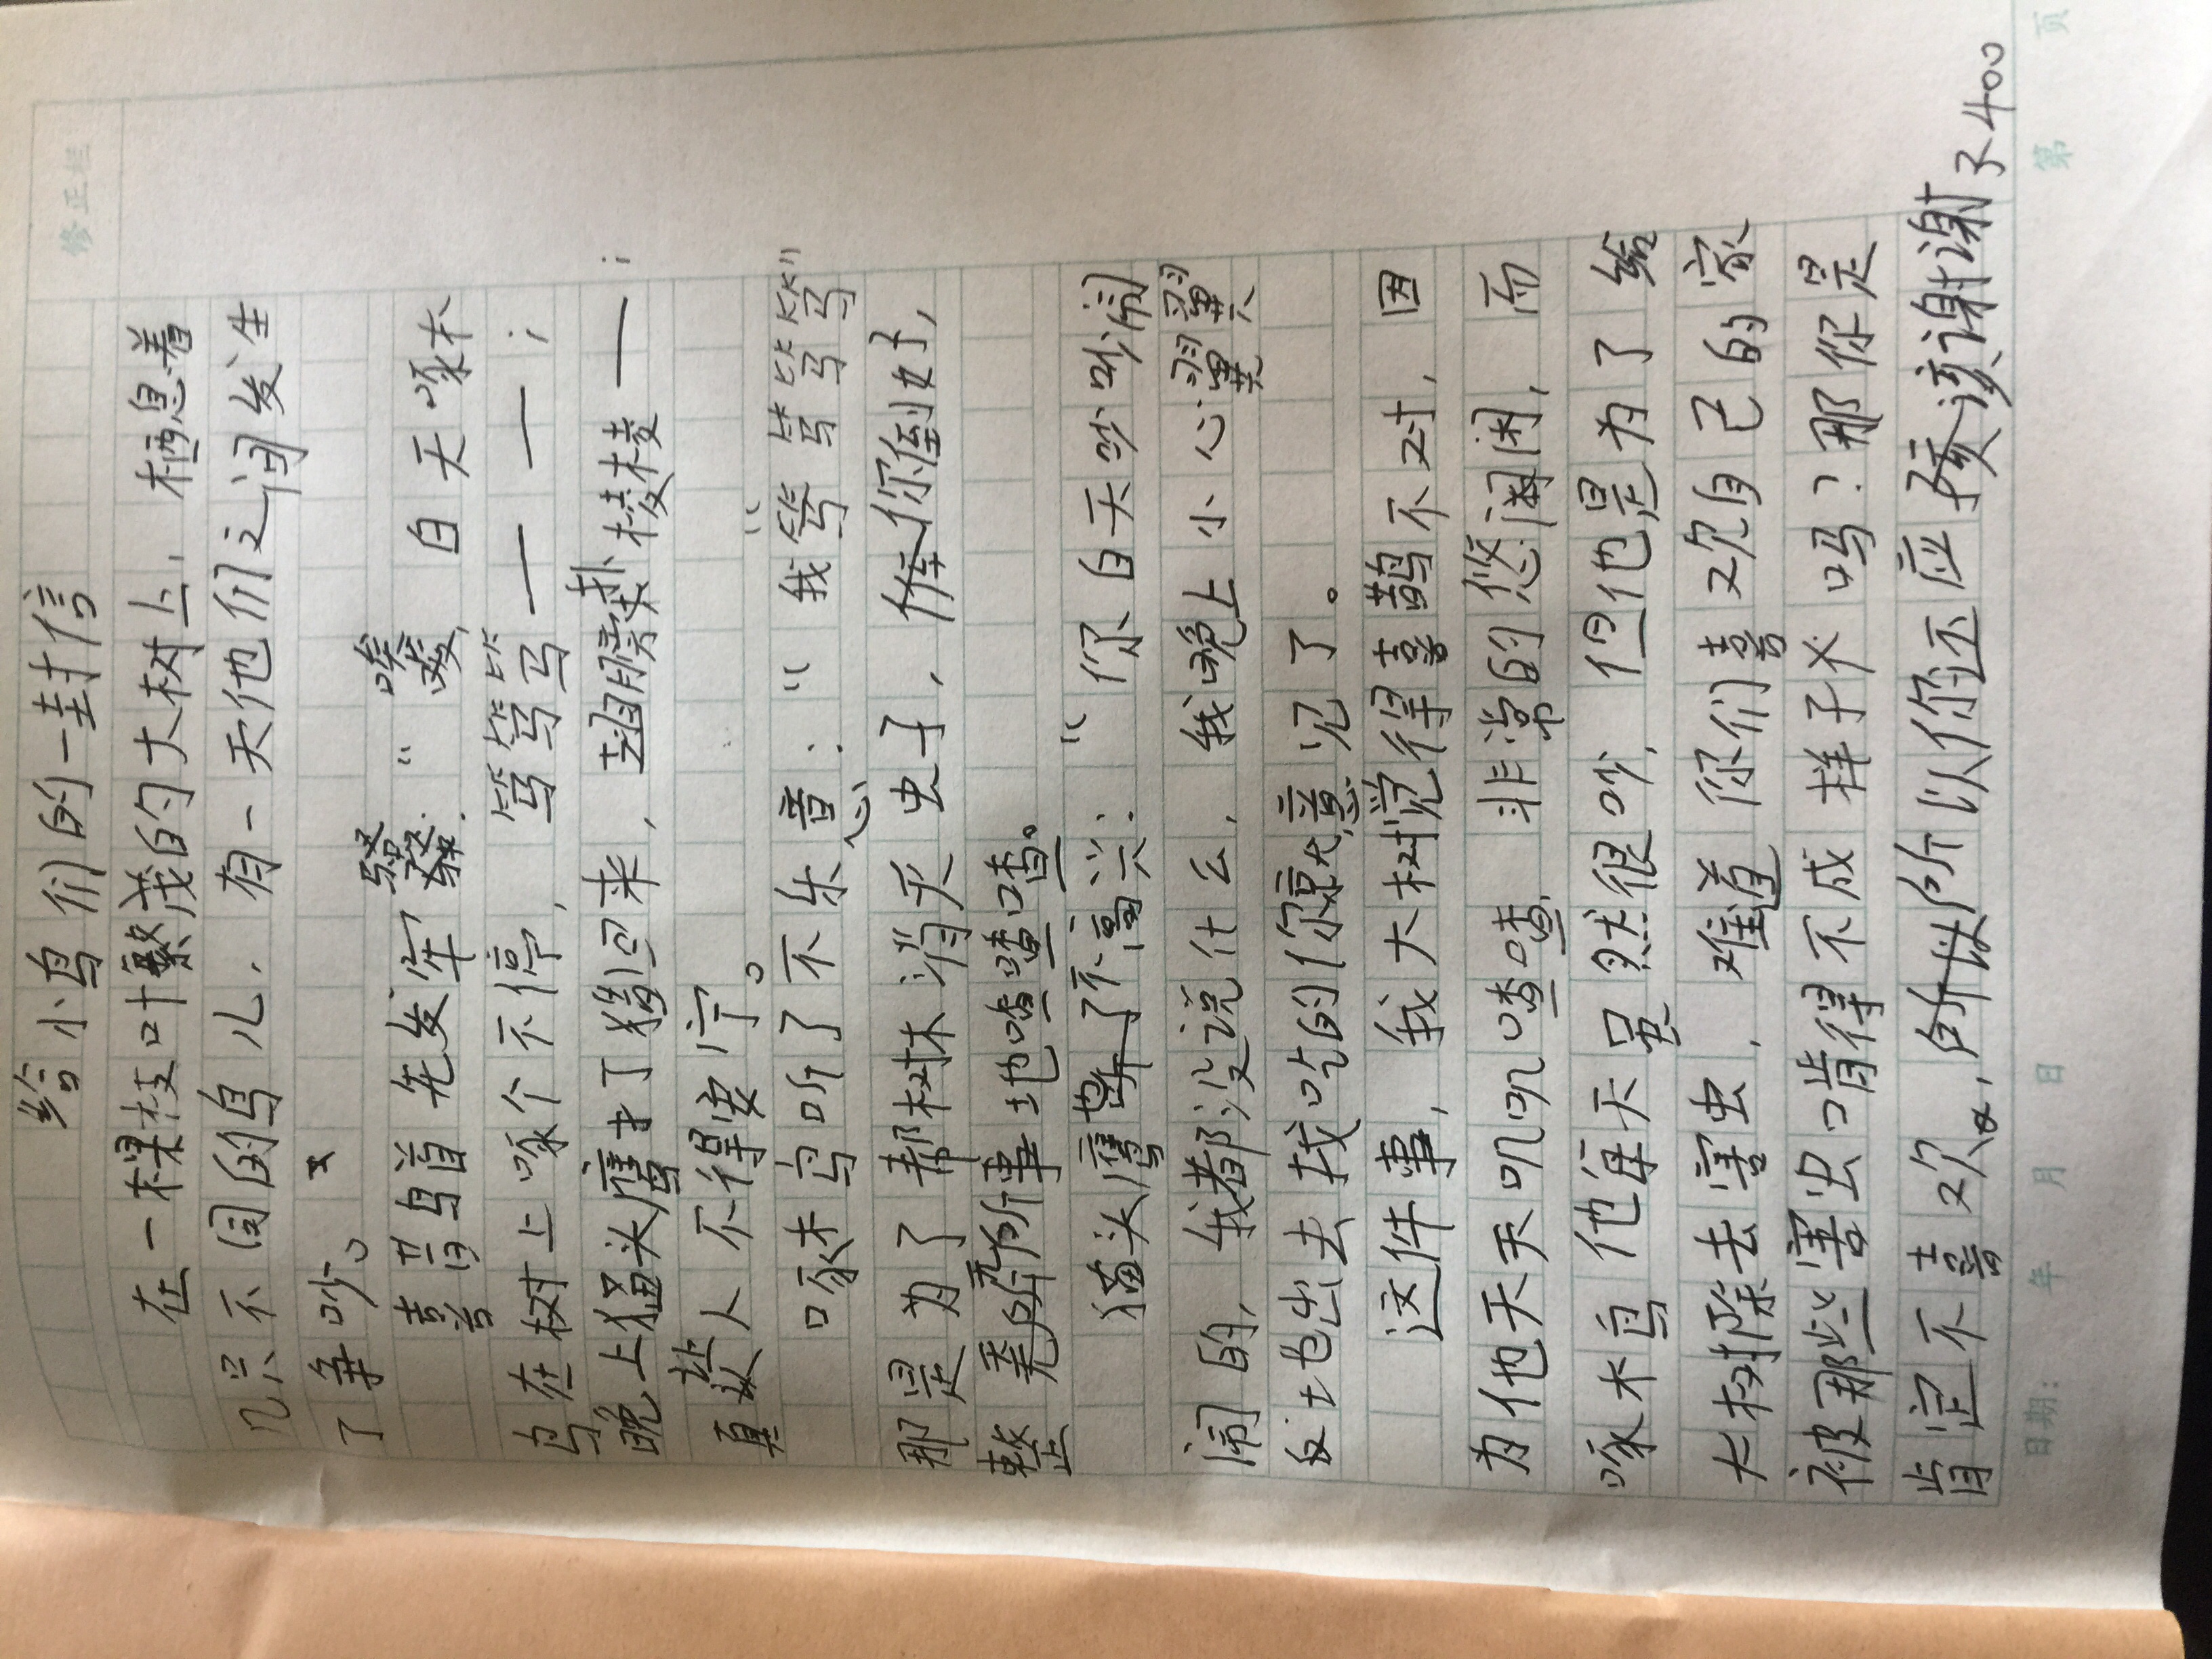 修正栏
给小鸟们的一封信
在一棵枝叶繁茂的大树上，栖息着
几只不同的鸟儿，有一天他们之间发生
了争吵。
喜鹊首先发牢骚：“唉，白天啄木
鸟在树上啄个不停，笃笃笃———；
晚上猫头鹰打了猎回来，翅膀扑棱棱——；
真人不得安宁。
啄木鸟听了不乐意：“我笃笃笃笃”
那是为了帮树木消灭虫子，你倒好，
整无所事事地喳喳喳。
猫头鹰了不高兴：“你白天吵吵闹
闹的，我都没说什么，我晚上小心翼翼
反地出去找吃的你意见了。
这件事，我大树觉得喜鹊不对，因
为他天天叽叽喳喳，非常的悠闲，而
啄木鸟他每天虽然很吵，但他是为了给
大树除去害虫，难道你们喜欢自己的家
被那些害虫啃得不成样子吗？那你是
肯定不喜欢，所以你还应该谢谢了400
日期： 年 月 日 第 页